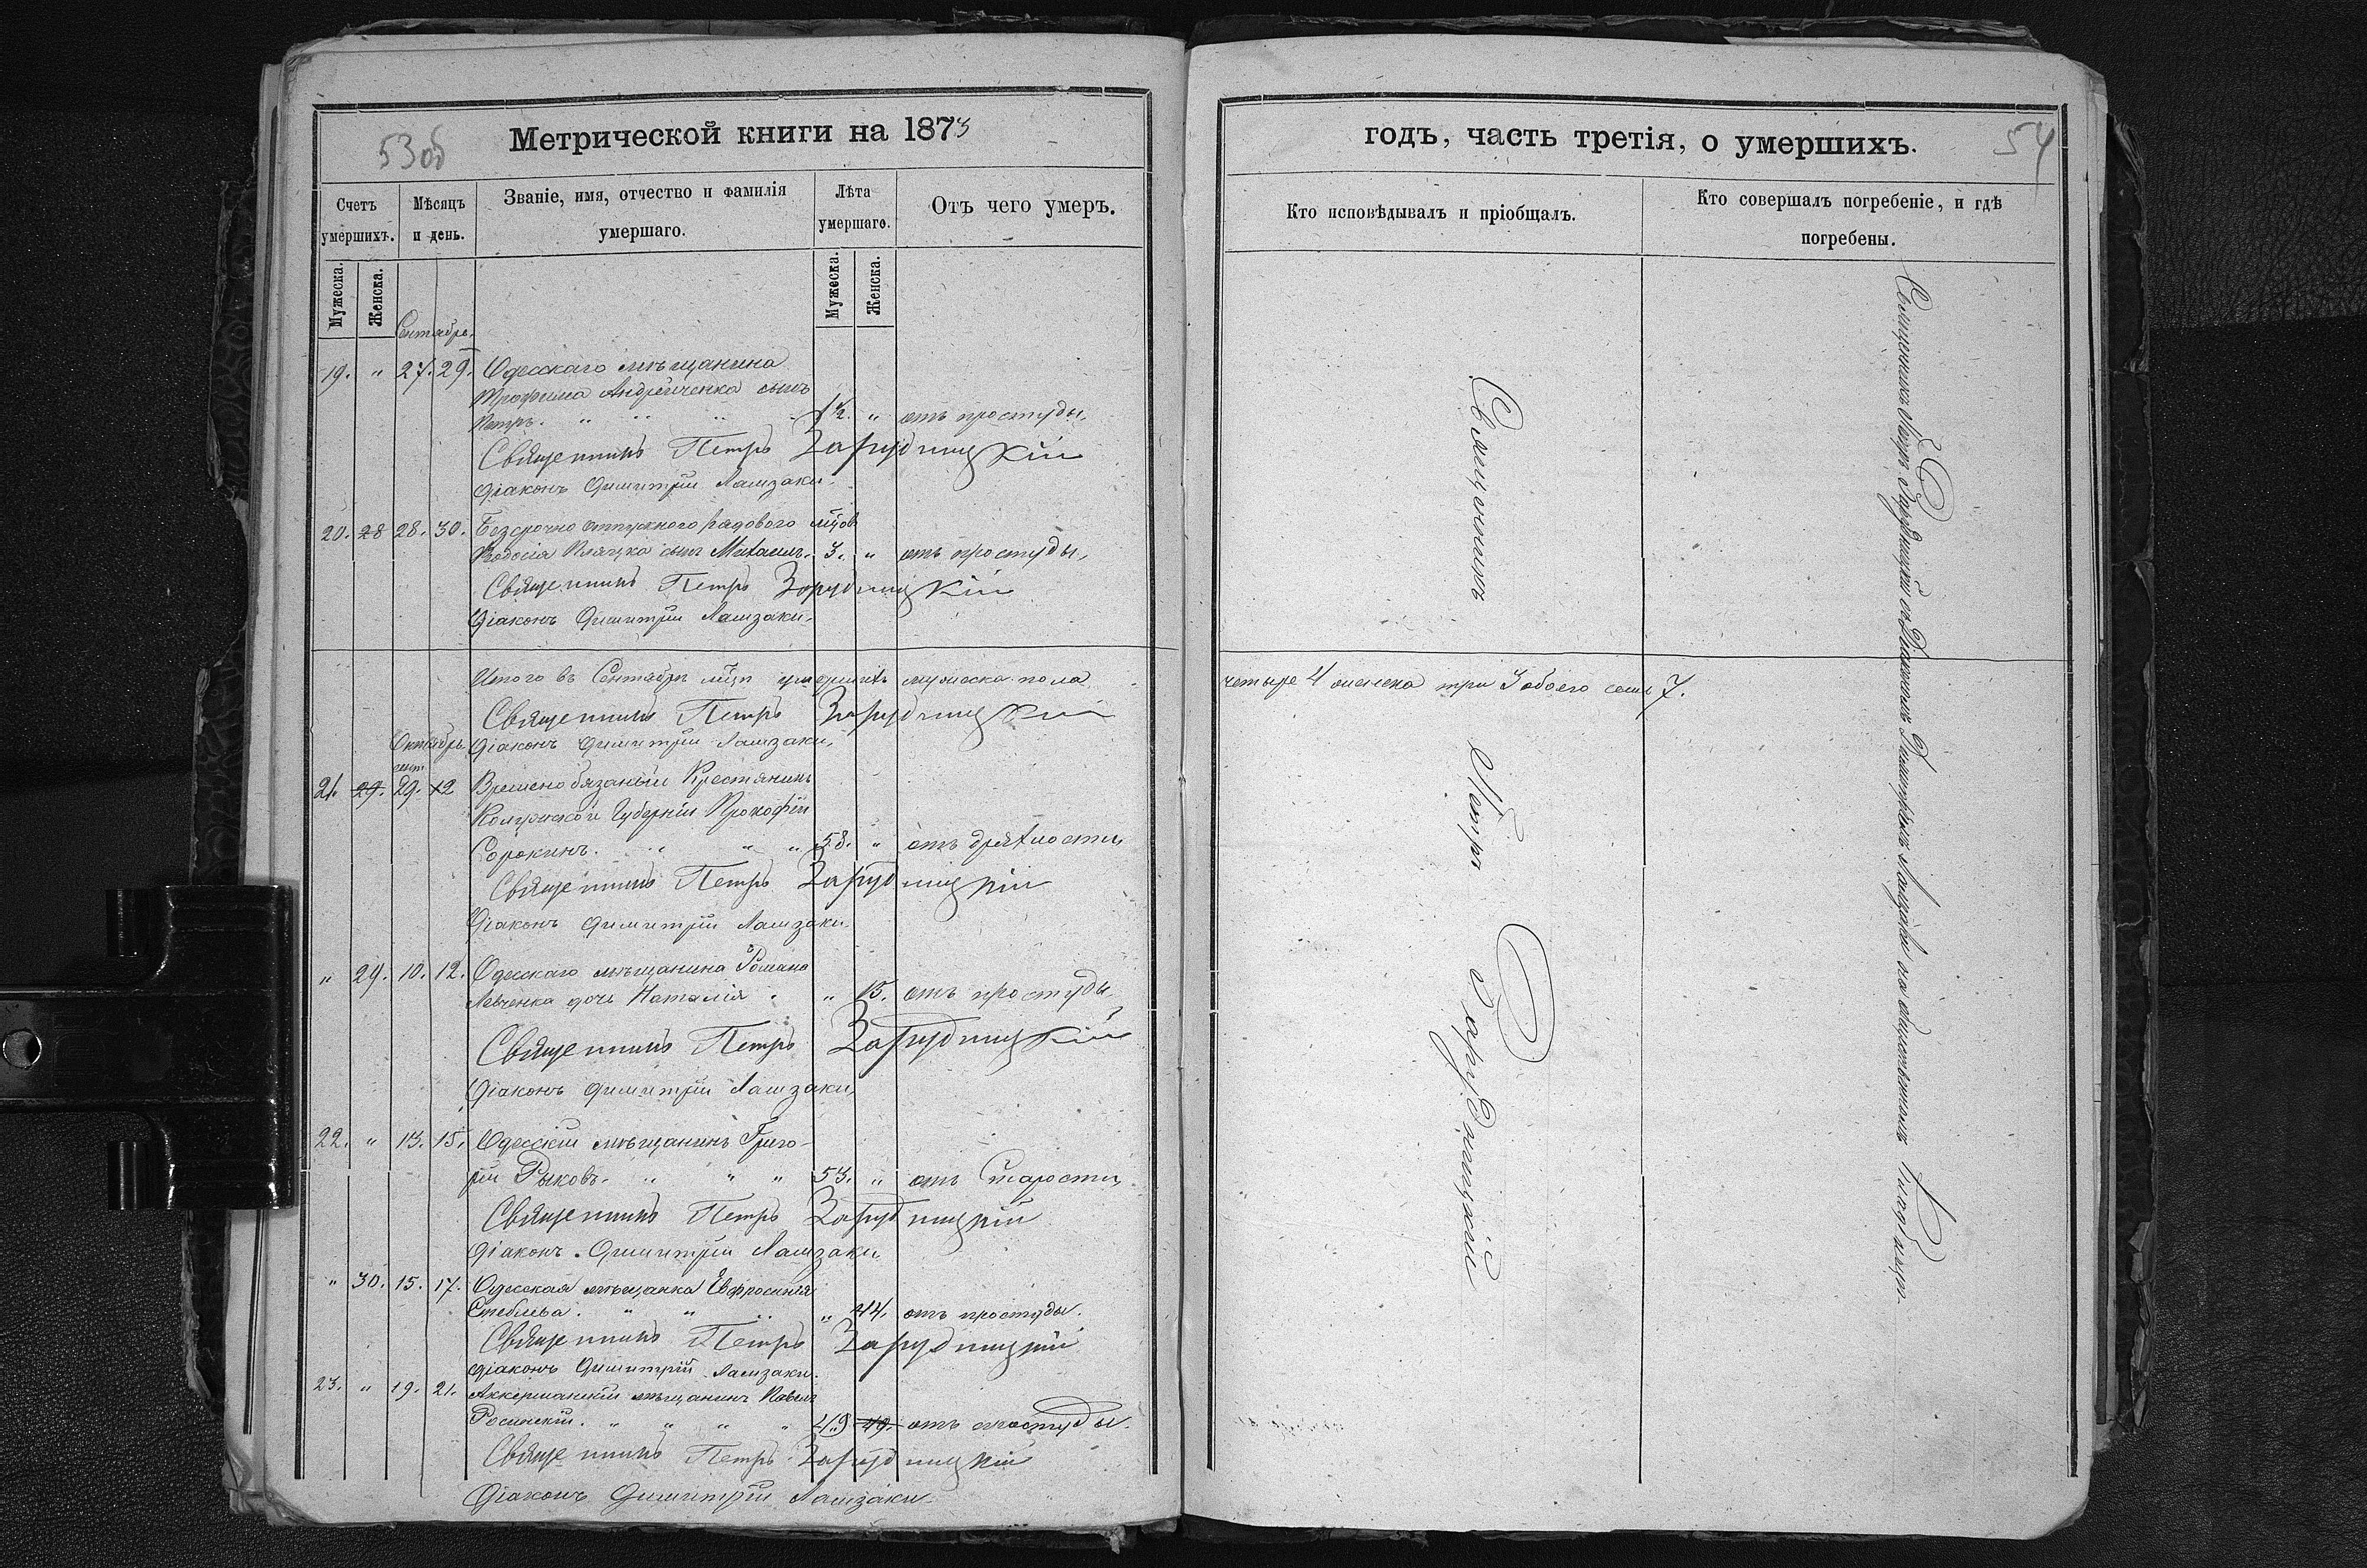 53об
Метрической книги на 1873
Счетъ умершихъ.
Мѣсяцъ и день.
Званіе, имя, отчество и фамилія умершаго.
Лѣта умершаго.
Отъ чего умеръ.
Мужеска.
Женска.
Мужеска.
Женска.
Сентябрь.
19. " 27. 29. Одесскаго мѣщанина
Трофима Андрейченка сынъ
Петръ. " " " 1½. " отъ простуды.
Священникъ Петръ Зарудницкій
Діаконъ Димитрій Ламзаки.
20. 28 28. 30. Безсрочно отпускного рядового
Ѳеодосія сынъ Михаилъ. 3. " отъ простуды.
Священникъ Петръ Зарудницкій
Діаконъ Димитрій Ламзаки.
Итого въ Сентябрѣ мцѣ умершихъ мужеска пола
Священникъ Петръ Зарудницкій
Октябрь Діаконъ Димитрій Ламзаки.
сент
21. 29. 29. 12 Временобязаный Крестянинъ
Губерніи Прокофій
Сорокинъ. " " " 58. " отъ дряхлости
Священникъ Петръ Зарудницкій
Діаконъ Димитрій Ламзаки.
" 29. 10. 12. Одесскаго мѣщанина Романа
Левченка дочь Наталія. " 15. отъ простуды.
Священникъ Петръ Зарудницкій
Діаконъ Димитрій Ламзаки.
22. " 13. 15. Одесскій мѣщанинъ Григо-
рій Рыковъ. " " " 53. " отъ Старости
Священникъ Петръ Зарудницкій
Діаконъ. Димитрій Ламзаки
" 30. 15. 17. Одесская мѣщанка Евфросинія
" " " " 44. отъ простуды.
Священникъ Петръ Зарудницкій
Діаконъ Димитрій Ламзаки.
23. " 19. 21. Аккерманскій мѣщанинъ Павелъ
Росинскій. " " " " 49 49. отъ простуды.
Священникъ Петръ Зарудницкій
Діаконъ Димитрій Ламзаки.
годъ, часть третія, о умершихъ.
54
Кто исповѣдывалъ и пріобщалъ.
Кто совершалъ погребеніе, и гдѣ погребены.
четыре 4 женска три 3 обоего семь 7.
Священникъ Петръ Зарудницкій
Священникъ Петръ Зарудницкій съ Діакономъ Димитріемъ Ламзаки на общественномъ кладбищѣ.